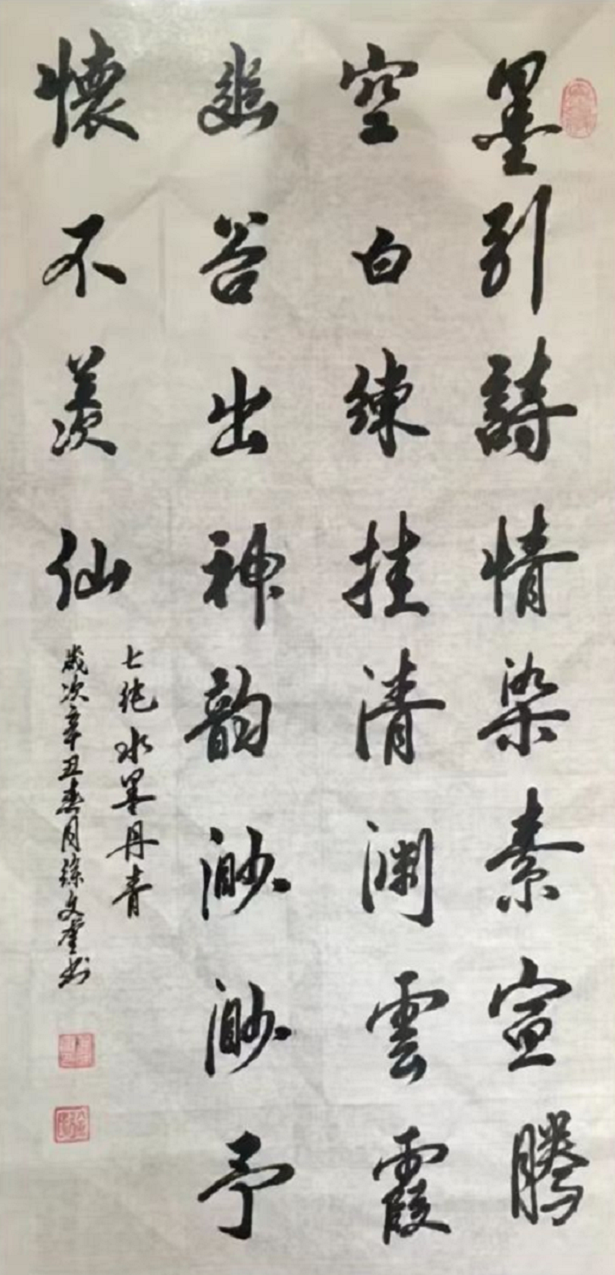 墨引詩情染素宣騰
空白練挂清渊雲霞
幽谷出神韵渺渺予
懷不羡仙
七绝水墨丹青
歲次辛丑春月徐文奎书